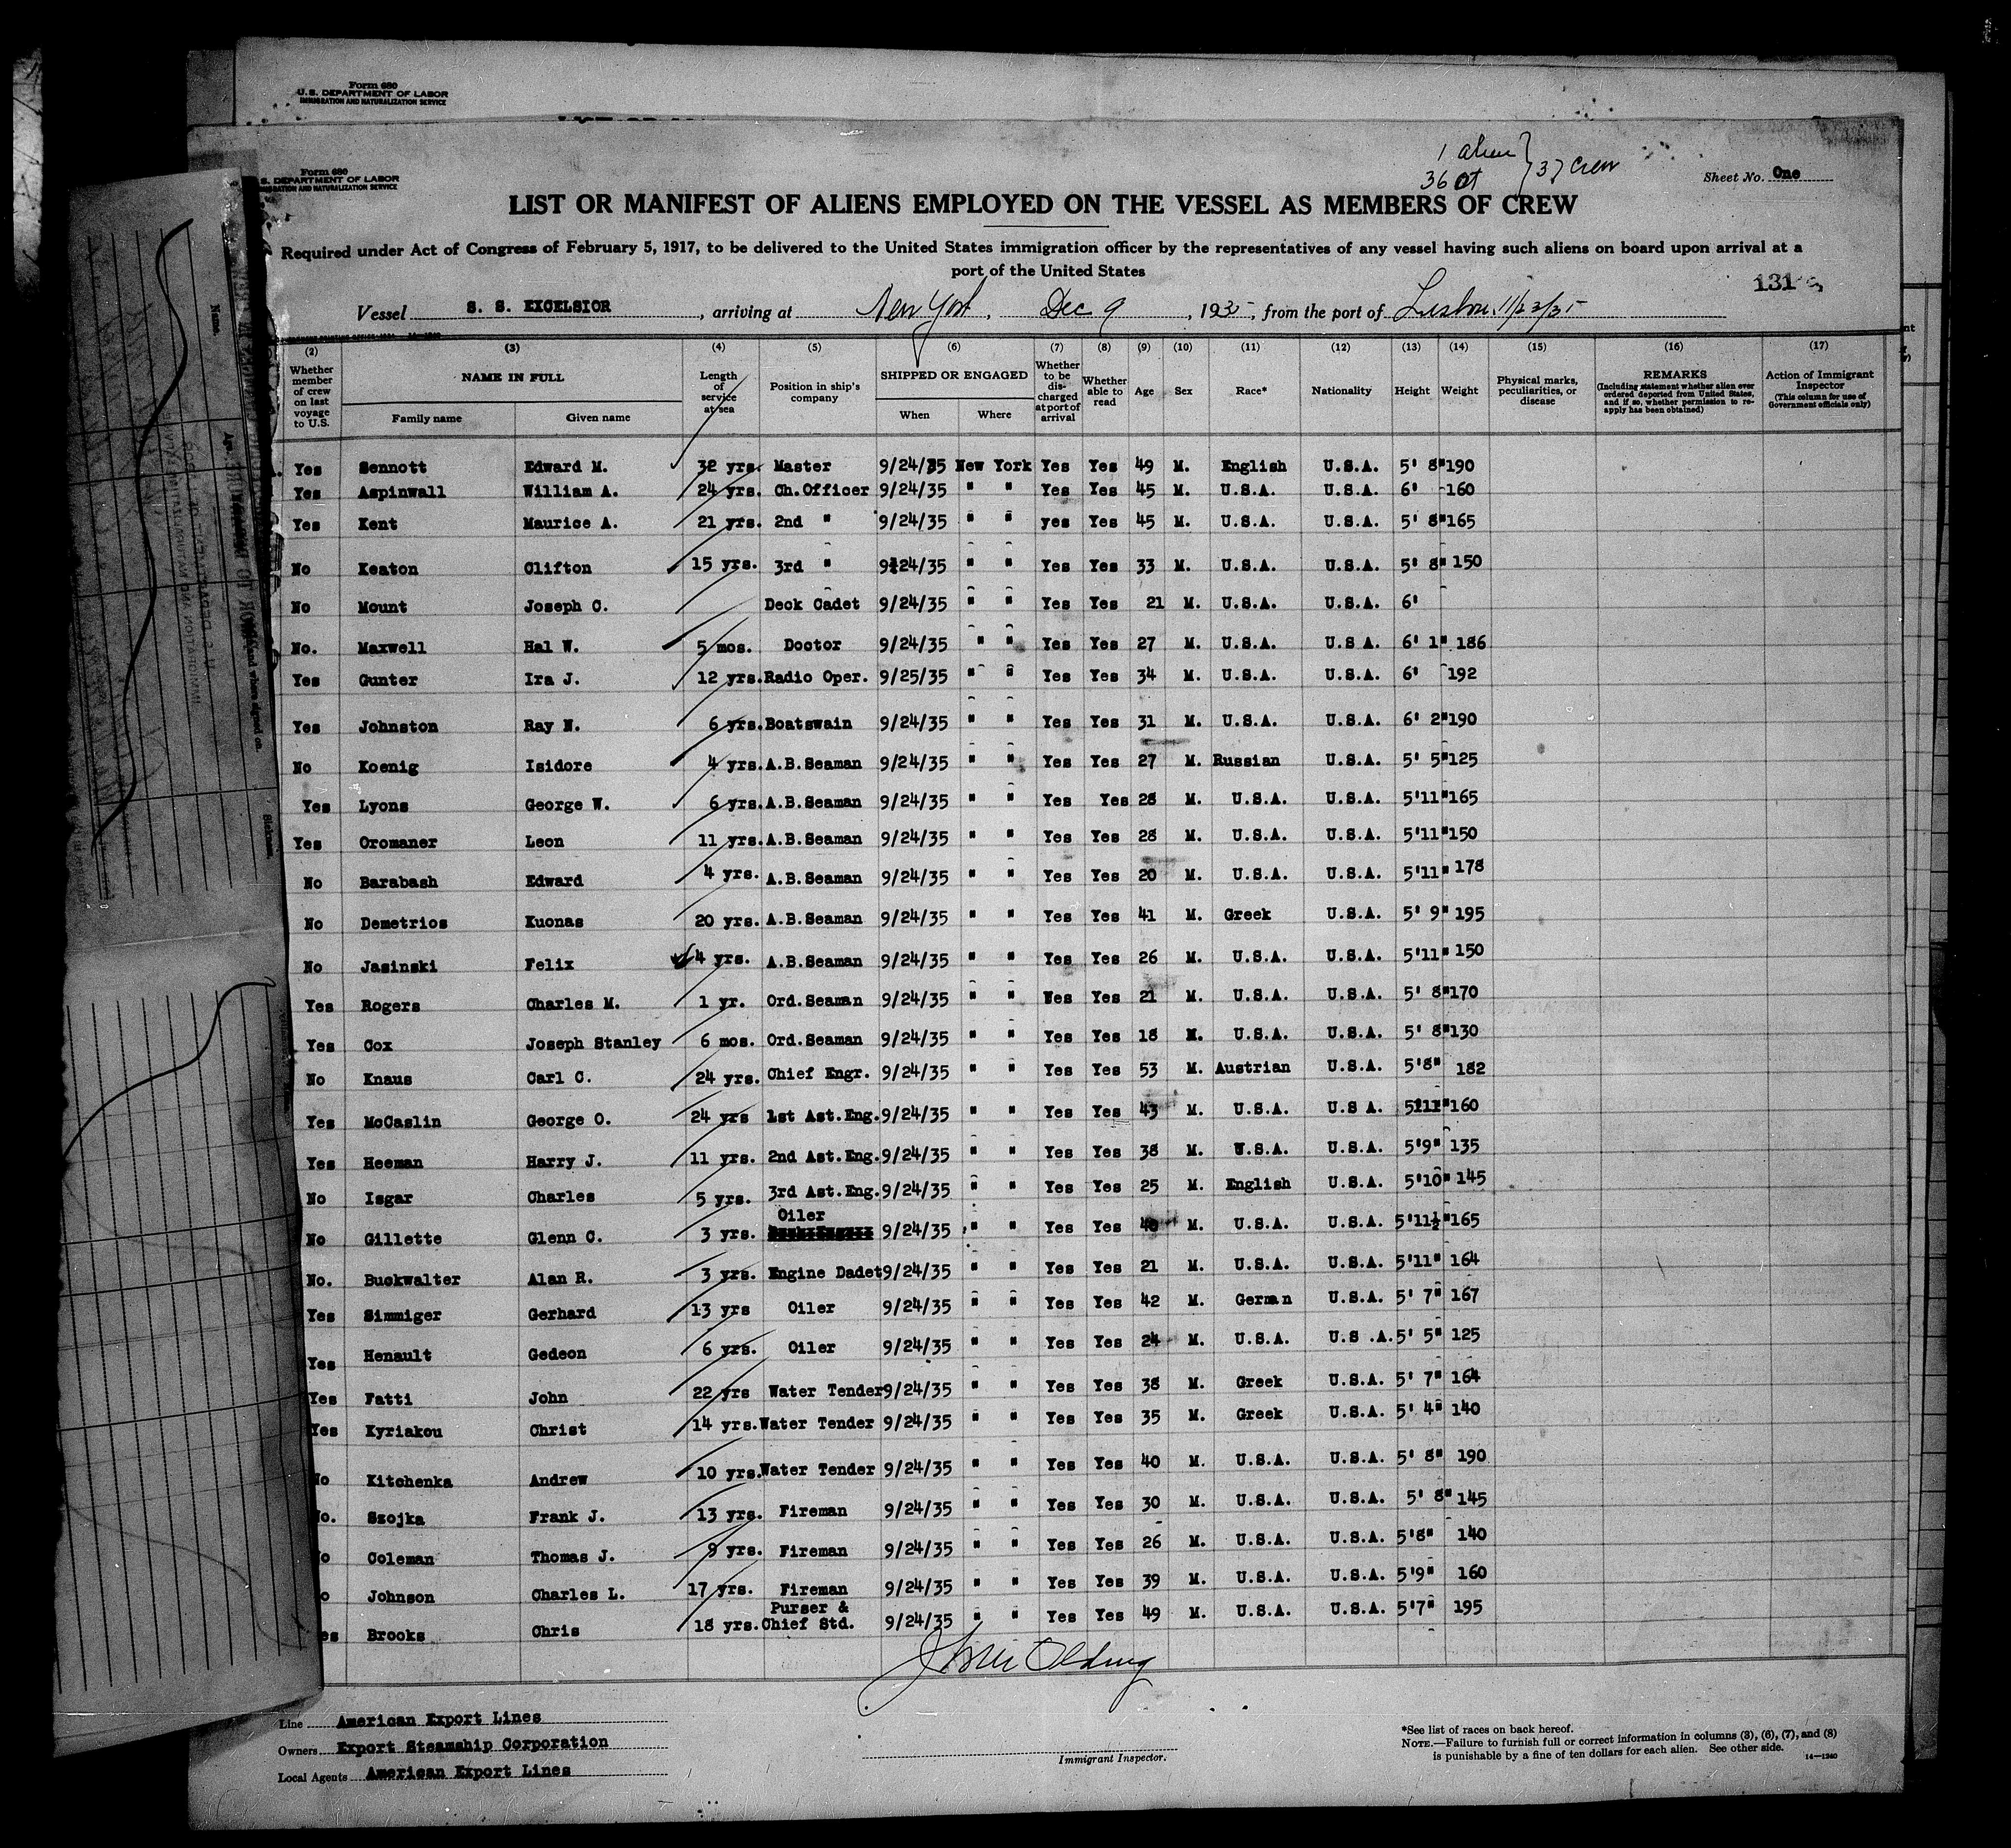 Form 680
U.S. DEPARTMENT OF LABOR
IMMIGRATION AND NATURALIZATION SERVICE
Form 680
U.S. DEPARTMENT OF LABOR
IMMIGRATION AND NATURALIZATION SERVICE
1 alien
36 cit } 37 crew
Sheet No. One
LIST OR MANIFEST OF ALIENS EMPLOYED ON THE VESSEL AS MEMBERS OF CREW
Required under Act of Congress of February 5, 1917, to be delivered to the United States immigration officer by the representatives of any vessel having such aliens on board upon arrival at a
port of the United States
131
Vessel S. S. EXCELSIOR, arriving at New York, Dec 9, 1935, from the port of Lisbon. 11/23/35
(2) (3) (4) (5) (6) (7) (8) (9) (10) (11) (12) (13) (14) (15) (16) (17)
Whether member of crew on last voyage to U.S. NAME IN FULL Family name Given name Length of service at sea Position in ship's company SHIPPED OR ENGAGED When Where Whether to be discharged at port of arrival Whether able to read Age Sex Race* Nationality Height Weight Physical marks, peculiarities, or disease REMARKS (Including statement whether alien ever ordered deported from United States, and if so, whether permission to reapply has been obtained) Action of Immigrant Inspector (This column for use of Government officials only)
Yes Sennott Edward M. 32 yrs. Master 9/24/35 New York Yes Yes 49 M. English U.S.A. 5' 8" 190
Yes Aspinwall William A. 24 yrs. Ch.Officer 9/24/35 " " Yes Yes 45 M. U.S.A. U.S.A. 6' 160
Yes Kent Maurice A. 21 yrs. 2nd " 9/24/35 " " yes Yes 45 M. U.S.A. U.S.A. 5' 8" 165
No Keaton Clifton 15 yrs. 3rd " 9/24/35 " " Yes Yes 33 M. U.S.A. U.S.A. 5' 8" 150
No Mount Joseph C. Deck Cadet 9/24/35 " " Yes Yes 21 M. U.S.A. U.S.A. 6'
No. Maxwell Hal W. 5 mos. Doctor 9/24/35 " " Yes Yes 27 M. U.S.A. U.S A. 6' 1" 186
Yes Gunter Ira J. 12 yrs. Radio Oper. 9/25/35 " " Yes Yes 34 M. U.S.A. U.S.A. 6' 192
Yes Johnston Ray N. 6 yrs. Boatswain 9/24/35 " " Yes Yes 31 M. U.S.A. U.S.A. 6' 2" 190
No Koenig Isidore 4 yrs. A.B.Seaman 9/24/35 " " Yes Yes 27 M. Russian U.S.A. 5' 5" 125
Yes Lyons George W. 6 yrs. A.B.Seaman 9/24/35 " " Yes Yes 28 M. U.S.A. U.S.A. 5'11" 165
Yes Oromaner Leon 11 yrs. A.B.Seaman 9/24/35 " " Yes Yes 28 M. U.S.A. U.S.A. 5'11" 150
No Barabash Edward 4 yrs. A.B.Seaman 9/24/35 " " Yes Yes 20 M. U.S.A. U.S.A. 5'11" 178
No Demetrios Kuonas 20 yrs. A.B.Seaman 9/24/35 " " Yes Yes 41 M. Greek U.S.A. 5' 9" 195
No Jasinski Felix 4 yrs. A.B.Seaman 9/24/35 " " Yes Yes 26 M. U.S.A. U.S.A. 5'11" 150
Yes Rogers Charles M. 1 yr. Ord.Seaman 9/24/35 " " Yes Yes 21 M. U.S.A. U.S.A. 5' 8" 170
Yes Cox Joseph Stanley 6 mos. Ord.Seaman 9/24/35 " " Yes Yes 18 M. U.S.A. U.S.A. 5' 8" 130
No Knaus Carl C. 24 yrs. Chief Engr. 9/24/35 " " Yes Yes 53 M. Austrian U.S.A. 5'8" 182
Yes McCaslin George O. 24 yrs 1st Ast.Eng. 9/24/35 " " Yes Yes 43 M. U.S.A. U.S A. 5'11" 160
Yes Heeman Harry J. 11 yrs. 2nd Ast.Eng. 9/24/35 " " Yes Yes 38 M. U.S.A. U.S.A. 5'9" 135
No Isgar Charles 5 yrs. 3rd Ast.Eng. 9/24/35 " " Yes Yes 25 M. English U.S.A. 5'10" 145
No Gillette Glenn C. 3 yrs. Oiler 9/24/35 " " Yes Yes 40 M. U.S.A. U.S.A. 5'11½" 165
No. Buckwalter Alan R. 3 yrs. Engine Dadet 9/24/35 " " Yes Yes 21 M. U.S.A. U.S.A. 5'11" 164
Yes Simmiger Gerhard 13 yrs Oiler 9/24/35 " " Yes Yes 42 M. German U.S.A. 5' 7" 167
Yes Henault Gedeon 6 yrs. Oiler 9/24/35 " " Yes Yes 24 M. U.S.A. U.S .A. 5' 5" 125
Yes Fatti John 22 yrs Water Tender 9/24/35 " " Yes Yes 38 M. Greek U.S.A. 5' 7" 164
Yes Kyriakou Christ 14 yrs. Water Tender 9/24/35 " " Yes Yes 35 M. Greek U.S.A. 5' 4" 140
No Kitchenka Andrew 10 yrs. Water Tender 9/24/35 " " Yes Yes 40 M. U.S.A. U.S.A. 5' 8" 190
No. Szojka Frank J. 13 yrs. Fireman 9/24/35 " " Yes Yes 30 M. U.S.A. U.S.A. 5' 8" 145
No Coleman Thomas J. 9 yrs. Fireman 9/24/35 " " Yes Yes 26 M. U.S.A. U.S.A. 5'8" 140
No Johnson Charles L. 17 yrs. Fireman 9/24/35 " " Yes Yes 39 M. U.S.A. U.S.A. 5'9" 160
Yes Brooks Chris 18 yrs. Purser & Chief Std. 9/24/35 " " Yes Yes 49 M. U.S.A. U.S.A. 5'7" 195
Line American Export Lines
Owners Export Steamship Corporation
Local Agents American Export Lines
Immigrant Inspector.
*See list of races on back hereof.
NOTE.—Failure to furnish full or correct information in columns (3), (6), (7), and (8)
is punishable by a fine of ten dollars for each alien. See other side.
14—1240